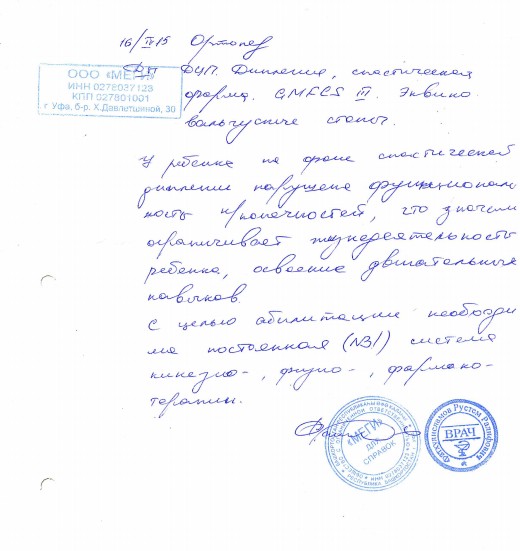 16/IV 15 Ортопед
ООО «МЕГИ»
ИНН 0278037123
КПП 027801001
г. Уфа, б-р. Х.Давлетшиной, 30
DП ДЦП. Диплегия, спастическая
форма. GMFCS III. Эквино
вальгусные стопы.
У ребенка на фоне спастической
диплегии нарушена функциональ
ность н/конечностей, что значим
ограничивает жизнедеятельность
ребенка, освоение двигательных
навыков.
С целью абилитации необходи
ма постоянная (№1) система
кинезио-, физио-, фармако-
терапии.
"МЕГИ"
ДЛЯ
СПРАВОК
РЕСПУБЛИКА БАШКОРТОСТАН
ВРАЧ
Рустем